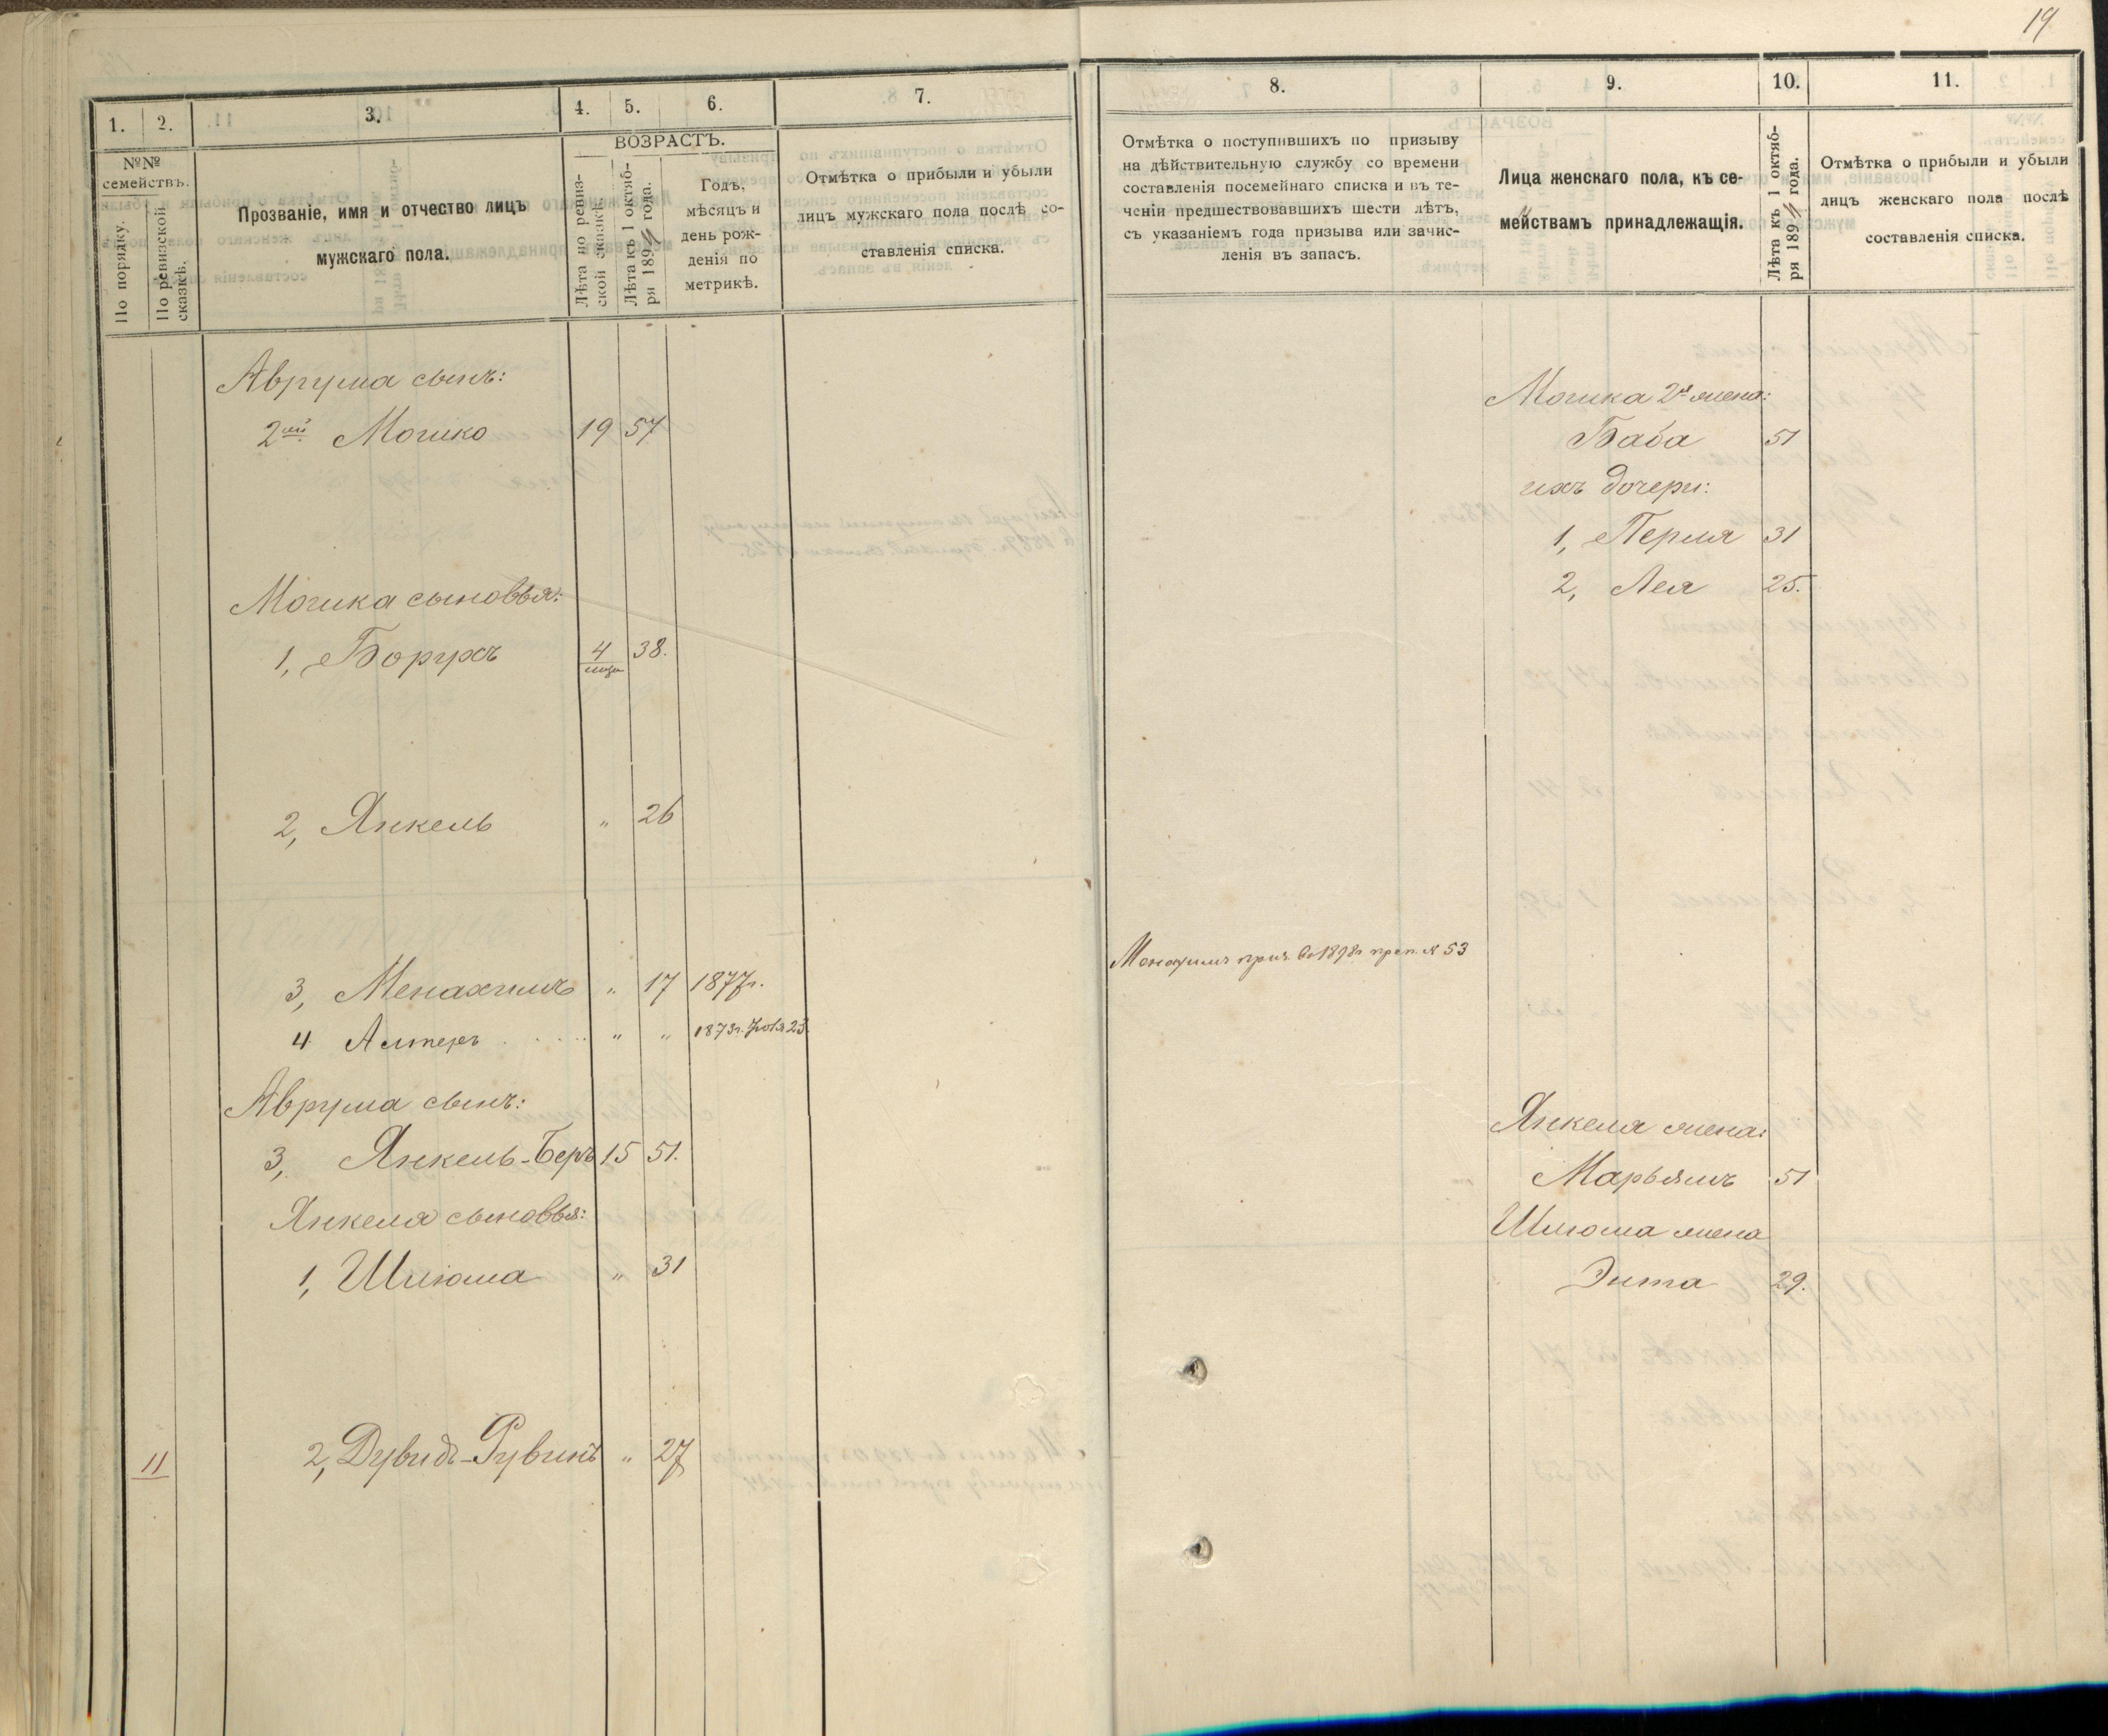 19
1.
2.
3.
4.
5.
6.
7.
№№
семействъ.
По порядку.
По ревизской
сказкѣ.
Прозваніе, имя и отчество лицъ
мужскаго пола.
ВОЗРАСТЪ.
Лѣта по ревиз-
ской сказкѣ.
Лѣта къ 1 октяб-
ря 1894 года.
Годъ,
мѣсяцъ и
день рож-
денія по
метрикѣ.
Отмѣтка о прибыли и убыли
лицъ мужскаго пола послѣ со-
ставленія списка.
Аврума сынъ:
2ый Мошко 19 57
Мошка сыновья:
1, Борухъ 4 38.
2, Янкель " 26
3, Менахимъ " 17 1877г.
4 Алтеръ " " 1873г. 23.
Аврума сынъ:
3, Янкель-Беръ 15 51.
Янкеля сыновья:
1, Шлюма " 31
11 2, Дувидъ-Рувинъ " 27
8.
9.
10.
11.
Отмѣтка о поступившихъ по призыву
на дѣйствительную службу со времени
составленія посемейнаго списка и въ те-
ченіи предшествовавшихъ шести лѣтъ,
съ указаніемъ года призыва или зачис-
ленія въ запасъ.
Лица женскаго пола, къ се-
мействамъ принадлежащія.
Лѣта къ 1 октяб-
ря 1894 года.
Отмѣтка о прибыли и убыли
лицъ женскаго пола послѣ
составленія списка.
Мошка 2я жена:
Баба 51
ихъ дочери:
1, Перля 31
2, Лея 25.
1898г № 53
Янкеля жена:
Марьямъ 51
Шлюма жена
Энта 29.